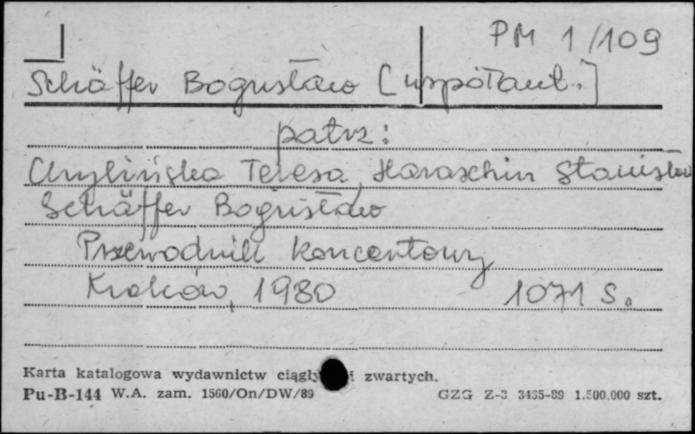 PM 1/109
Schäffer Bogusław [współaut.]
patrz:
Chylińska Teresa, Haraschin Stanisław
Schäffer Bogusław
Przewodnik koncertowy
Kraków, 1980 1071 s.
Karta katalogowa wydawnictw ciągły i zwartych.
Pu-B-144 W.A. zam. 1560/On/DW/89 GZG Z-3 3435-89 1.500.000 szt.